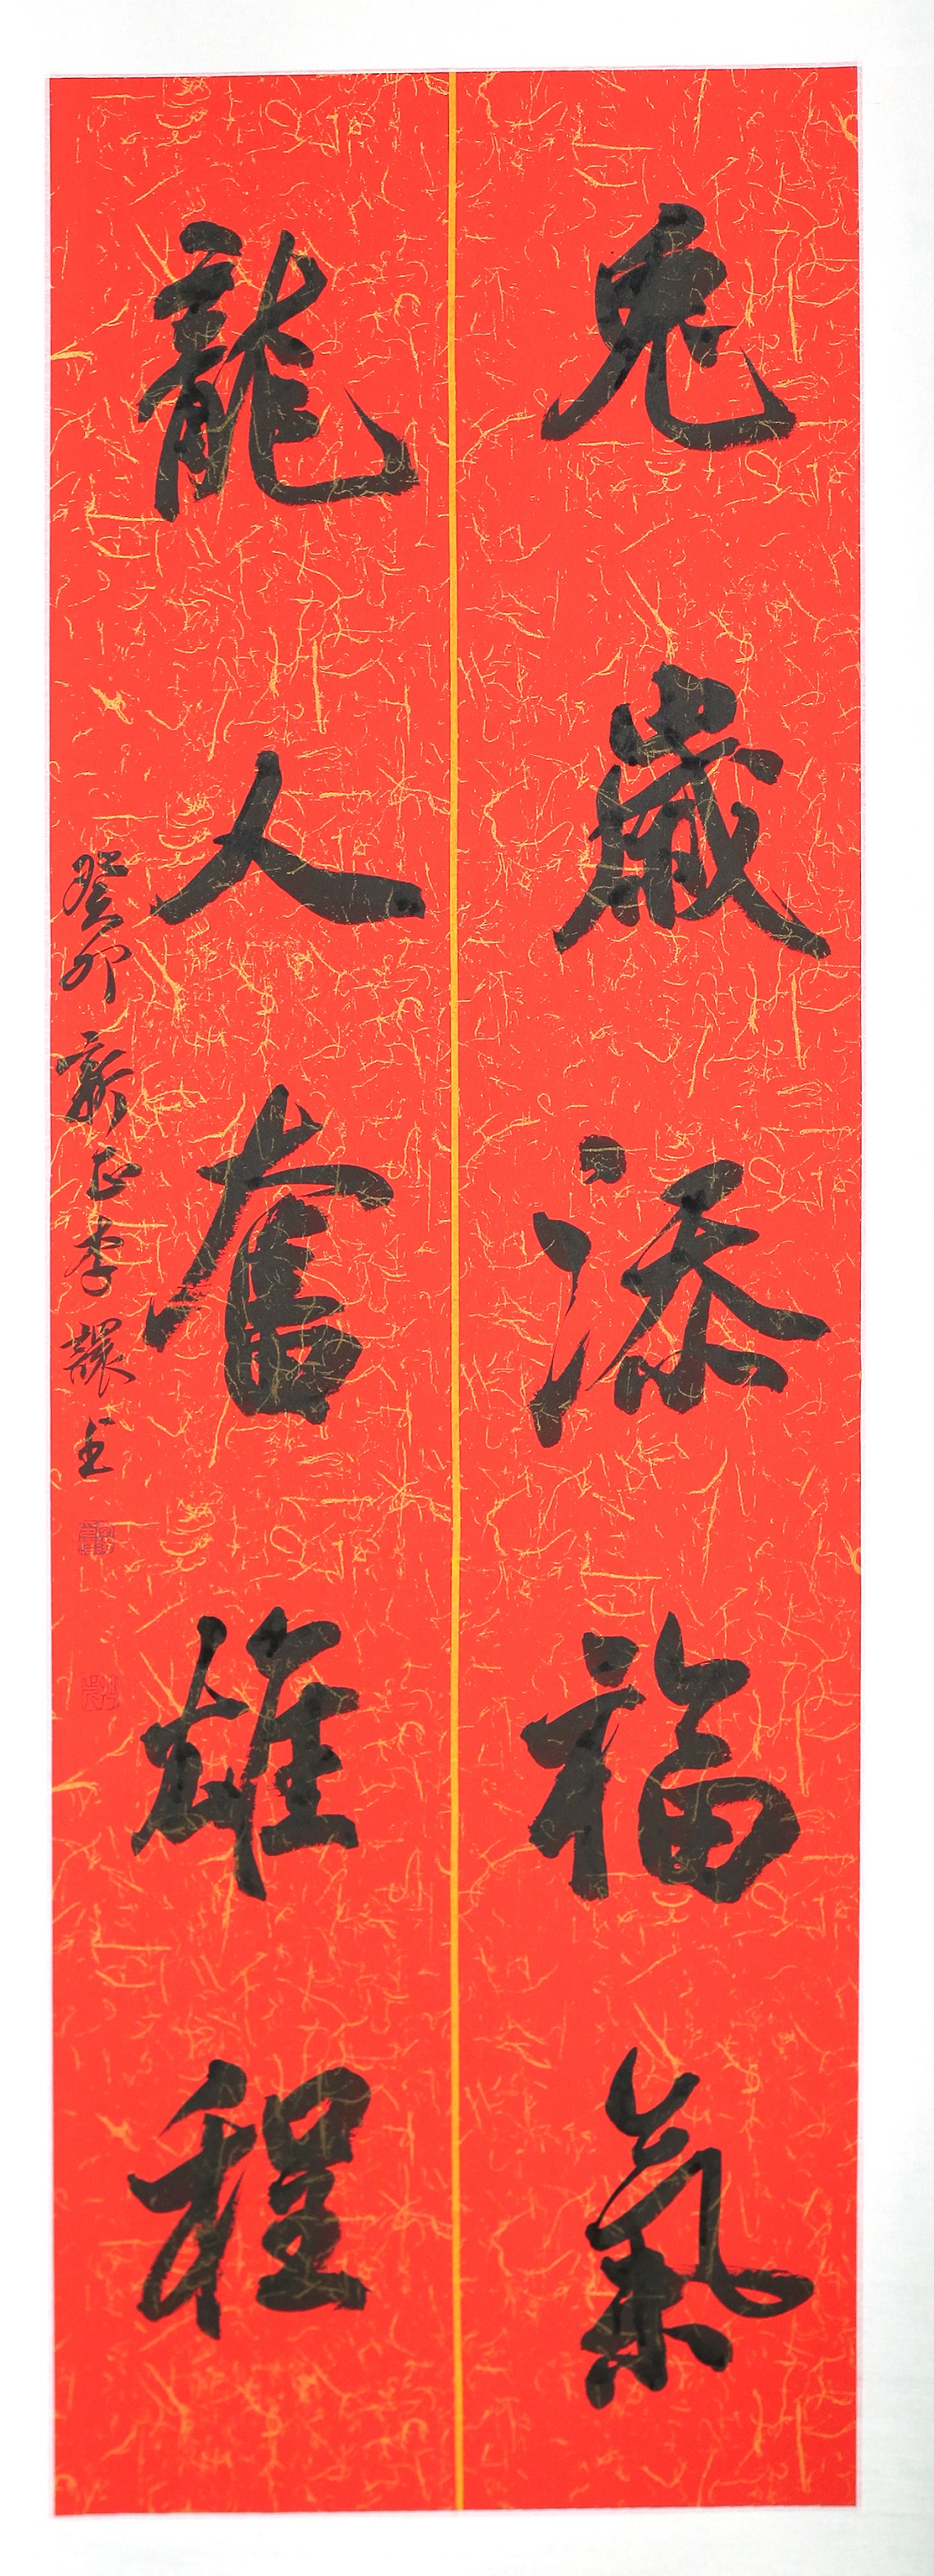 兔歲添福氣
龍人奮雄程
癸卯新正李讓書